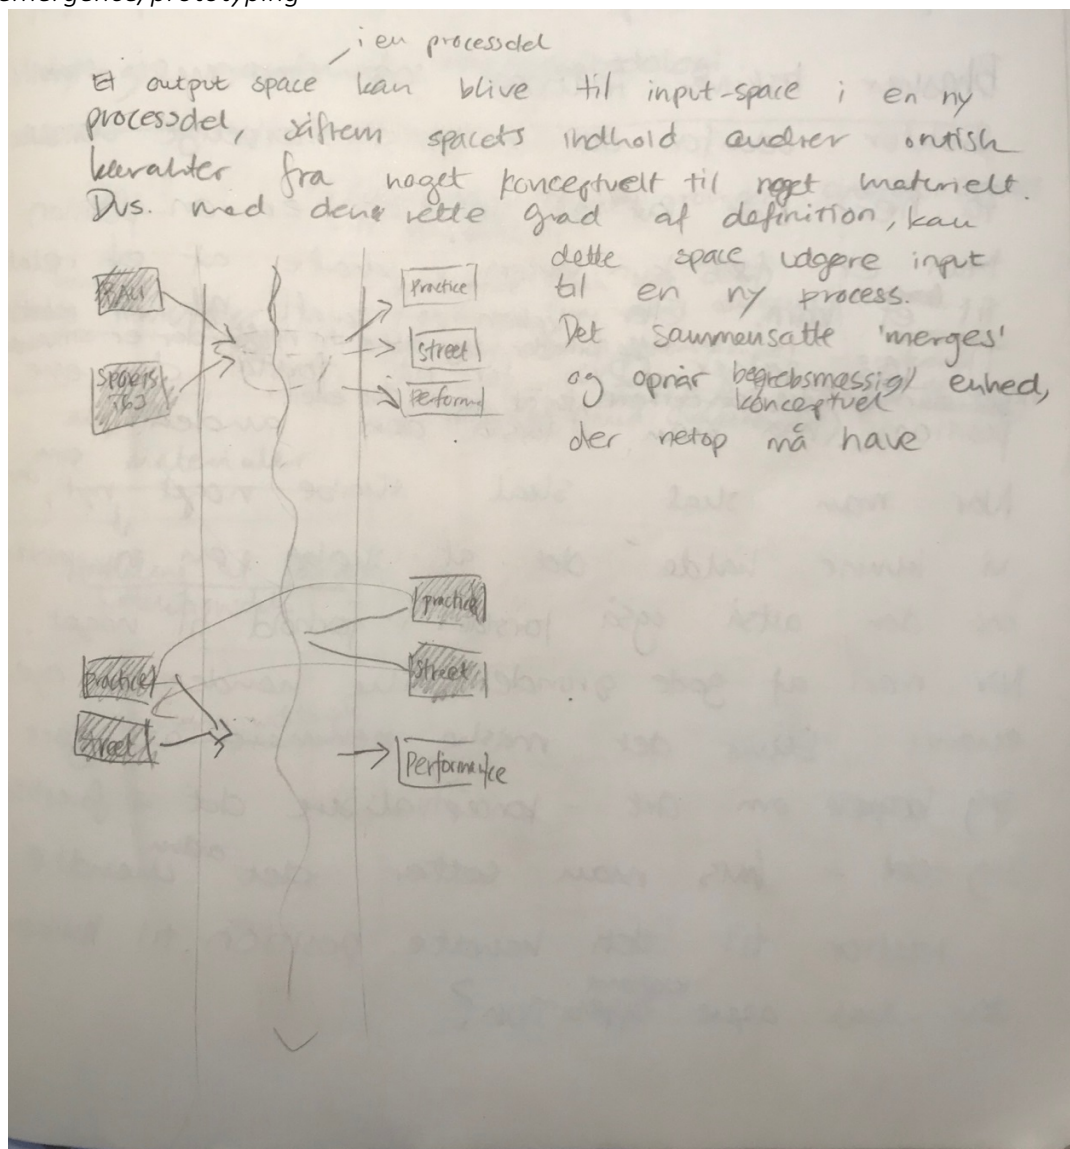 emergence/prototyping
i en processdel
Et output space kan blive til input-space i en ny
processdel, såfrem spacets indhold ændrer ontisk
karakter fra noget konceptuelt til noget materielt.
Dvs. med den rette grad af definition, kan
dette space udgøre input
til en ny process.
Det sammensatte 'merges'
og opnår begrebsmæssig/ enhed,
konceptuel
der netop må have
Practice
Street
Perform
practice
Street
practice
Street
Performance